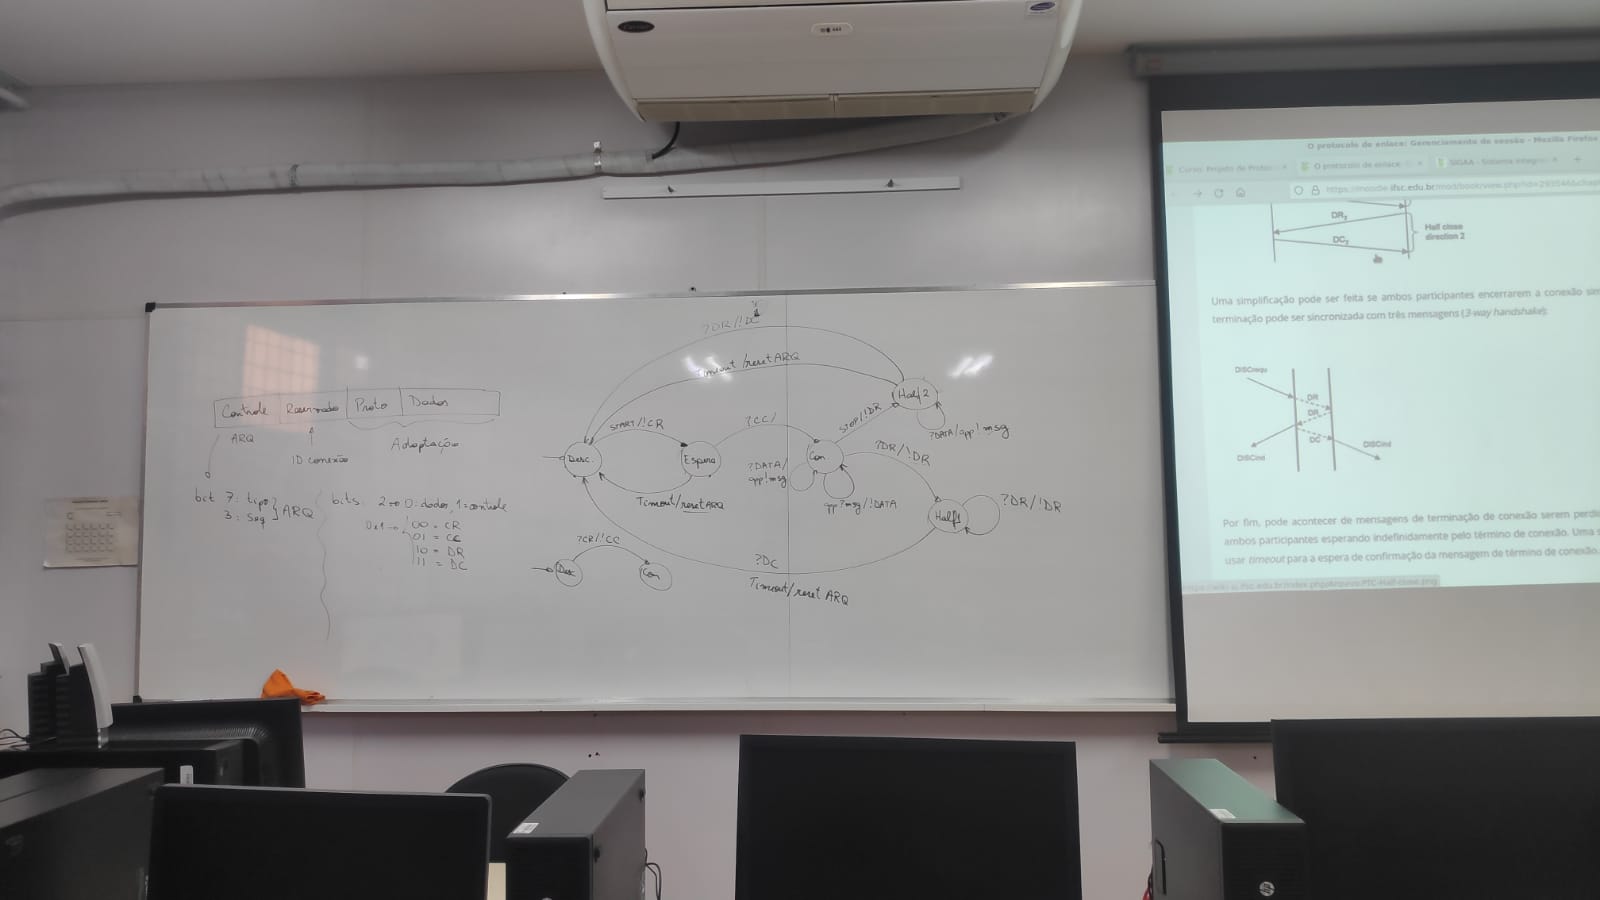 Controle Reservado Proto Dados
ARQ
ID conexão
Adaptação
bit 7: tipo
3: seq
ARQ
bits: 2 → 0: dados, 1 = controle
0 e 1 → 00 = CR
01 = CC
10 = DR
11 = DC
?DR/!DC
Timeout/reset ARQ
START/!CR
?CC/
STOP/!DR
Half2
?DATA/app!msg
Desc.
Espera
Con.
?DR/!DR
?DATA/
app!msg
app?msg/!DATA
Timeout/reset ARQ
Half1
?DR/!DR
?CR/!CC
Desc
Con
?DC
Timeout/reset ARQ
O protocolo de enlace: Gerenciamento de sessão - Mozilla Firefox
Curso: Projeto de Protoc
O protocolo de enlace:
SIGAA - Sistema Integra
DR2
Half close
direction 2
DC2
Uma simplificação pode ser feita se ambos participantes encerrarem a conexão
terminação pode ser sincronizada com três mensagens (3-way handshake):
DISCrequ
DR
DR
DC
DISCind
DISCind
Por fim, pode acontecer de mensagens de terminação de conexão serem
ambos participantes esperando indefinidamente pelo término de conexão. Uma
usar timeout para a espera de confirmação da mensagem de término de conexão.